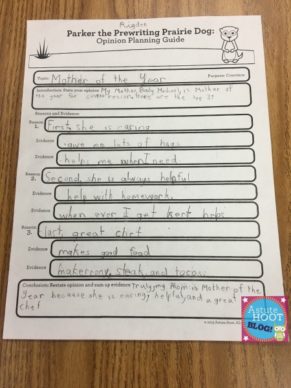 Parker the Prewriting Prairie Dog:
Opinion Planning Guide
Topic: Mother of the Year
Purpose: Convince
Introduction: State your opinion. My Mother, is Mother of
the year for
Reasons and Evidence:
Reason 1. First, she is caring
Evidence gives me lots of hugs
Evidence helps me when I need
Reason 2. Second, she is always helpful
Evidence help with homework.
Evidence when ever I get hert helps
Reason 3. last, great chef
Evidence makes good food
Evidence makerrony, steak, and tacos.
Conclusion: Restate opinion and sum up evidence. Mom is Mother of the
Year because she is caring, helpful, and a great
chef
Astute
HOOT
BLOG!